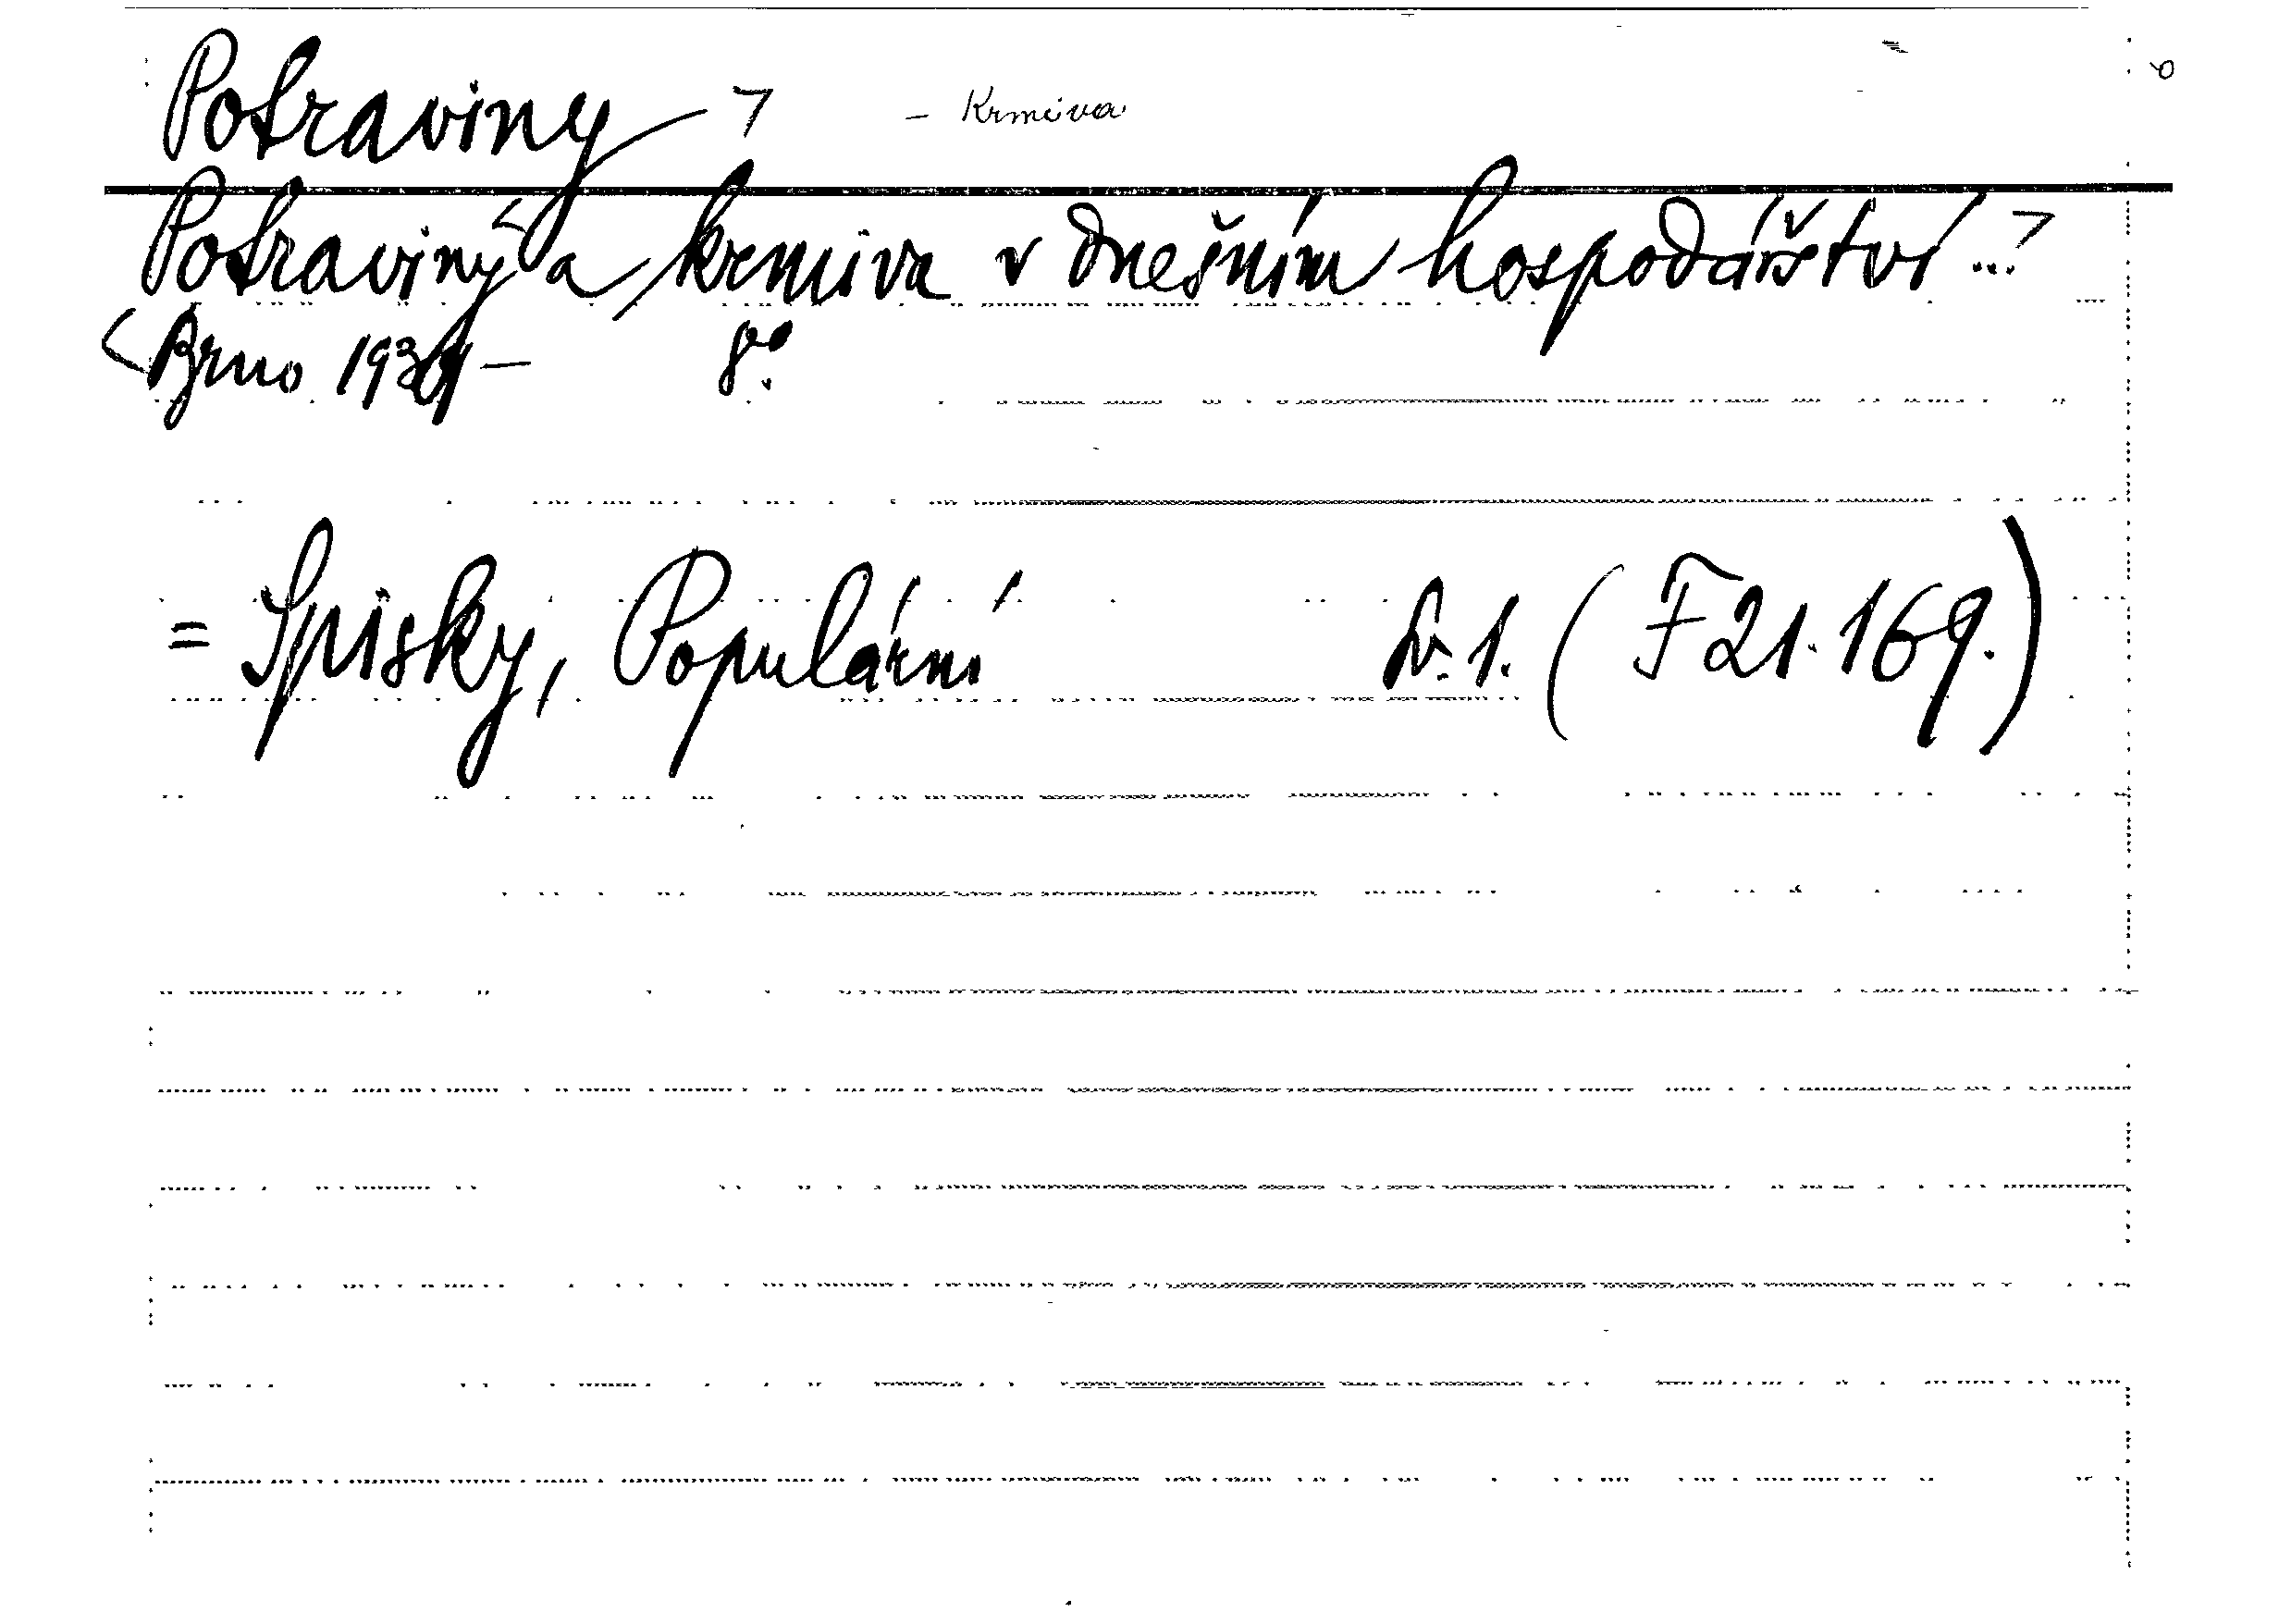 Potraviny > – Krmiva
Potraviny < a krmiva v dnešním hospodářství ... >
< Brno 1939 – 8°.
= Spisky, Populární sv. 1. (F 21.169.)